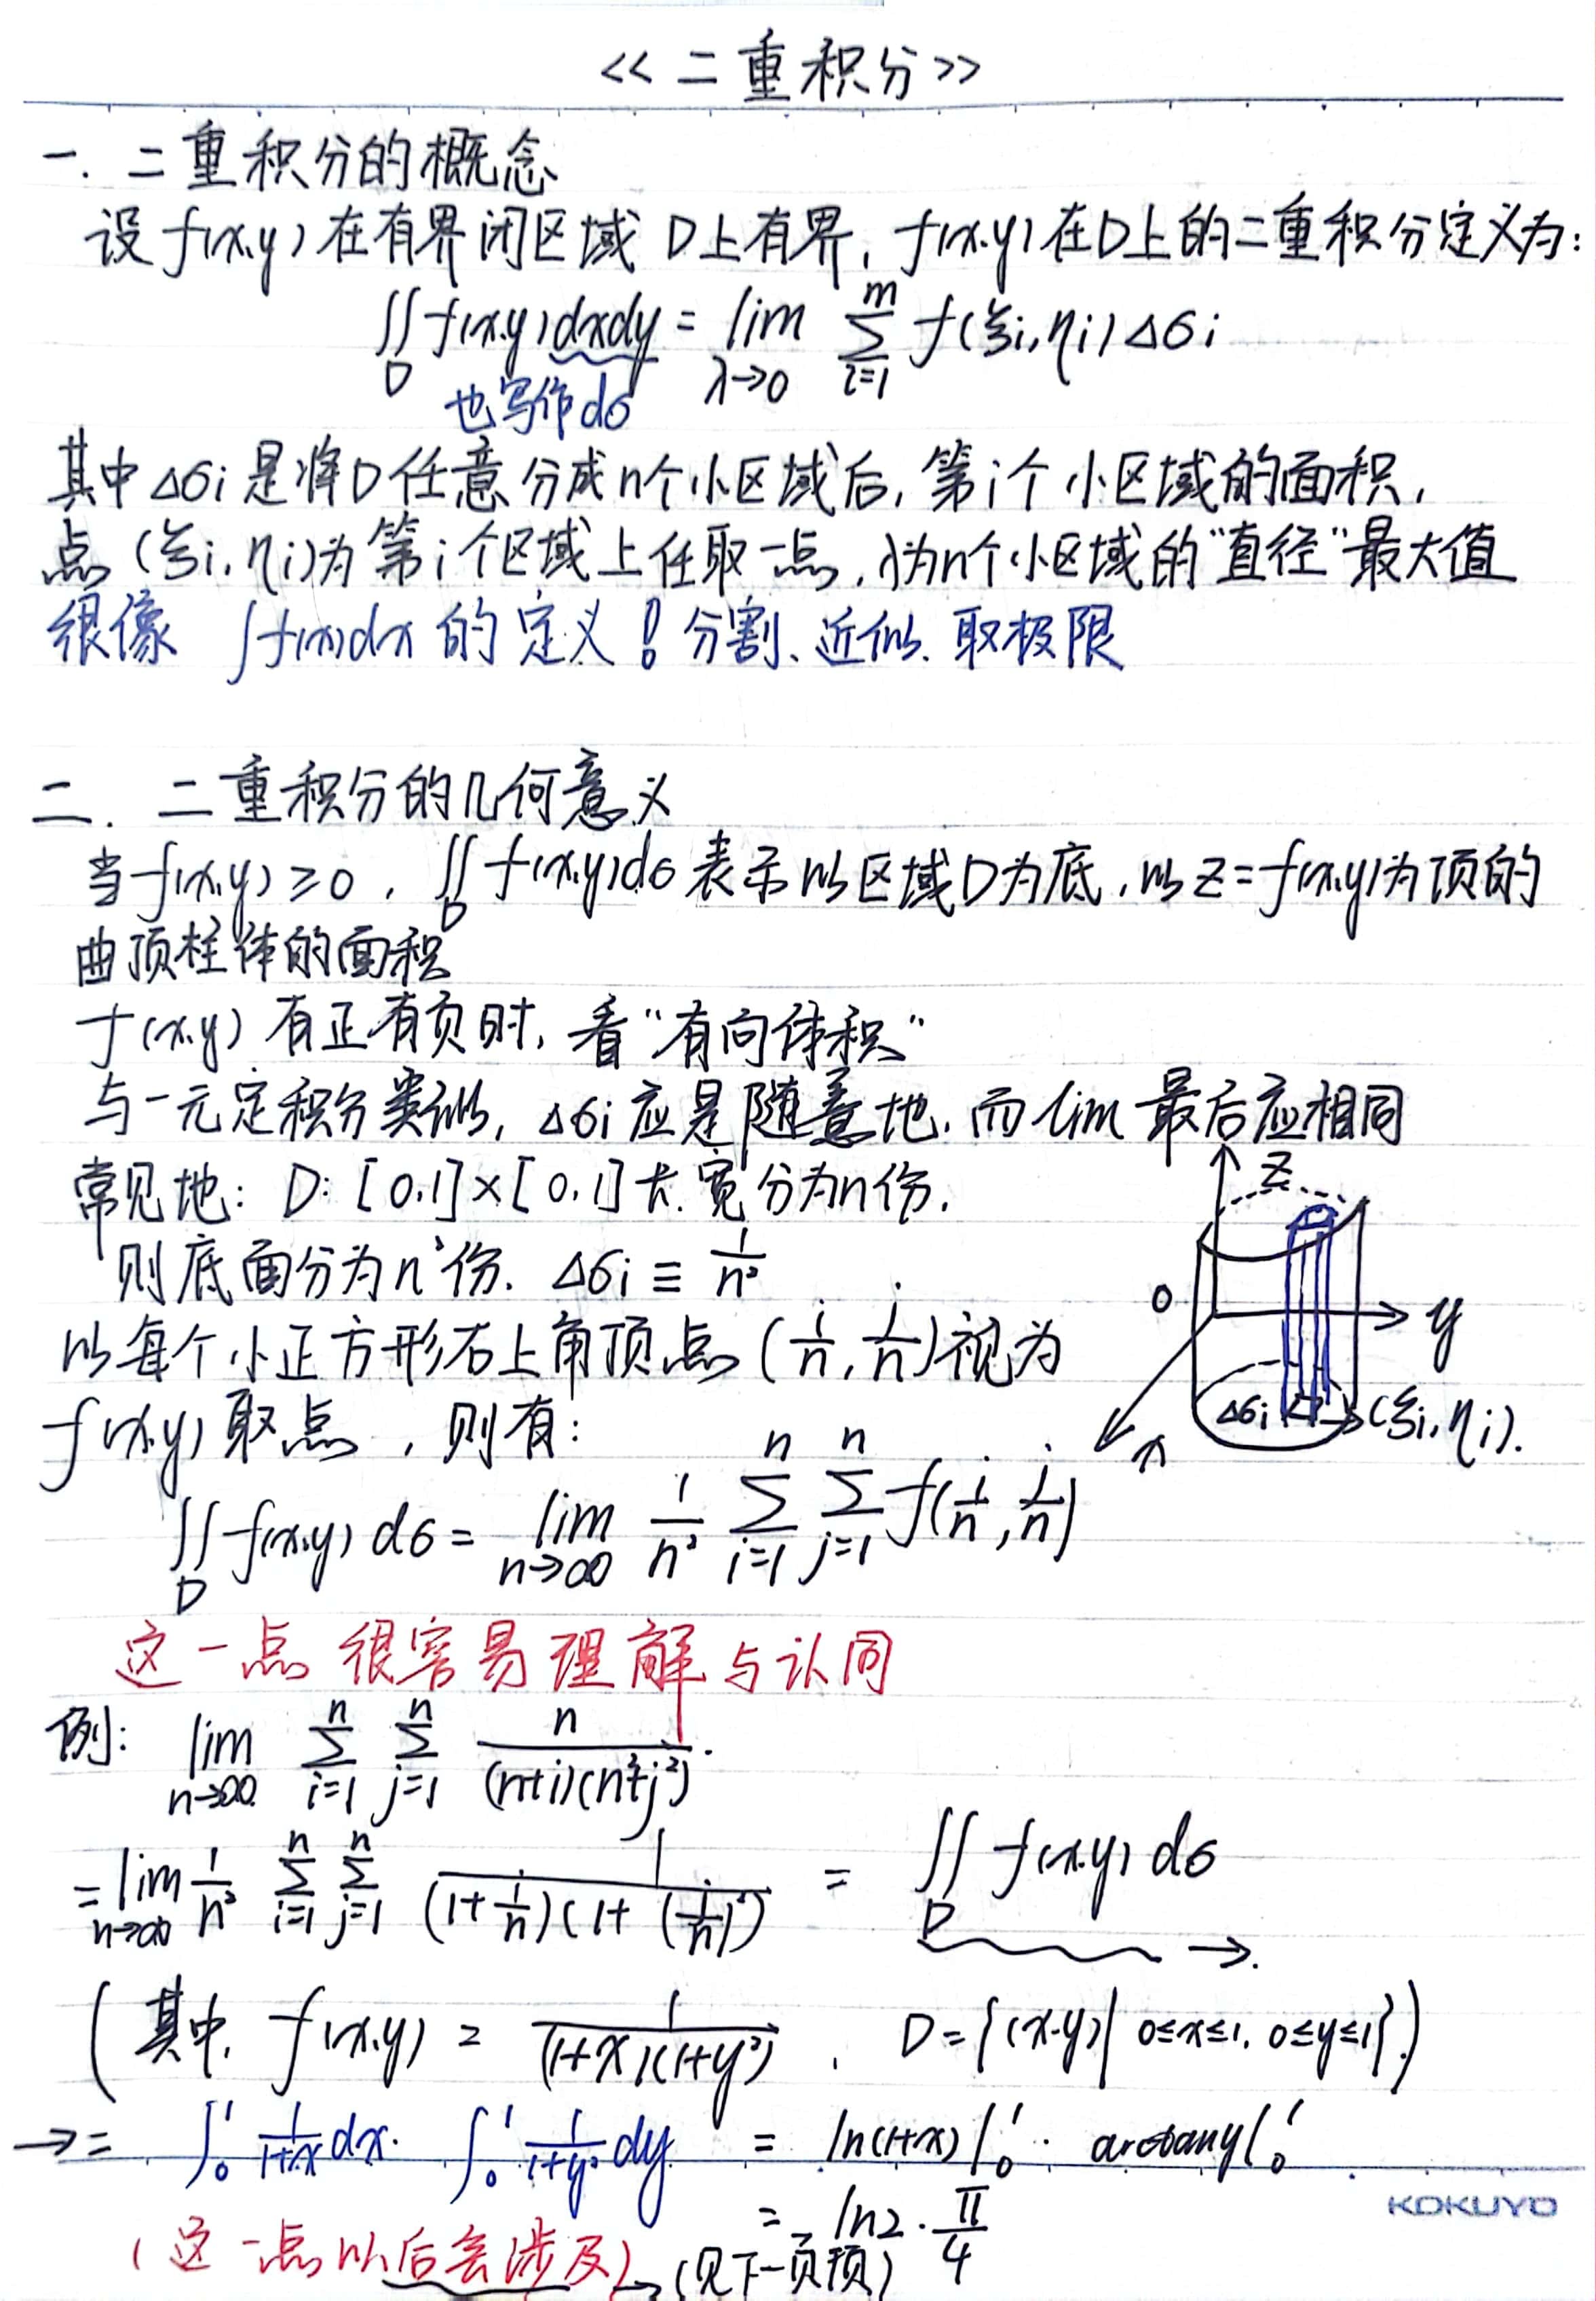 <<二重积分>>
一. 二重积分的概念
设 f(x,y) 在有界闭区域 D上有界, f(x,y)在D上的二重积分定义为:
∬_D f(x,y)dxdy = lim_{λ→0} ∑_{i=1}^{m} f(ξi,ηi)Δσi
也写作dσ
其中Δσi是将D任意分成n个小区域后, 第i个小区域的面积,
点(ξi,ηi)为第i个区域上任取一点, λ为n个小区域的"直径"最大值
很像 ∫f(x)dx 的定义! 分割、近似、取极限
二. 二重积分的几何意义
当f(x,y)≥0, ∬_D f(x,y)dσ表示以区域D为底,以z=f(x,y)为顶的
曲顶柱体的面积
f(x,y) 有正有负时, 看"有向体积"
与一元定积分类似, Δσi应是随意地, 而lim最后应相同
常见地: D: [0,1]×[0,1]长.宽分为n份.
则底面分为n²份. Δσi ≡ 1/n²
以每个小正方形右上角顶点(i/n, j/n)视为
f(x,y)取点, 则有:
z
0
y
x
Δσi
(ξi,ηi).
∬_D f(x,y) dσ = lim_{n→∞} 1/n² ∑_{i=1}^{n} ∑_{j=1}^{n} f(i/n, j/n)
这一点很容易理解与认同
例: lim_{n→∞} ∑_{i=1}^{n} ∑_{j=1}^{n} n/((n+i)(n²+j²)).
= lim_{n→∞} 1/n² ∑_{i=1}^{n} ∑_{j=1}^{n} 1/((1+i/n)(1+(j/n)²)) = ∬_D f(x,y) dσ →.
(其中, f(x,y) = 1/((1+x)(1+y²)), D={(x,y)| 0≤x≤1, 0≤y≤1}.)
→= ∫_0^1 1/(1+x) dx · ∫_0^1 1/(1+y²) dy = ln(1+x)|_0^1 · arctany|_0^1
= ln2 · π/4
KOKUYO
(这一点以后会涉及)→(见下一页顶)